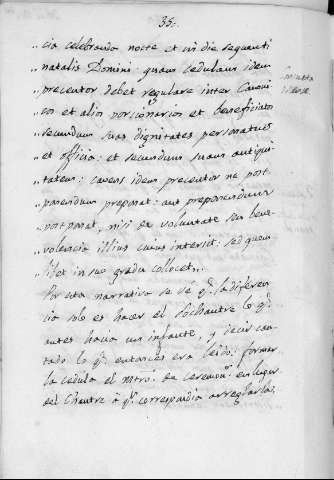 35.
„ cio celebrando nocte et in die sequenti
„ natalis Domini: quam cedulam idem
„ precentor debet regulare inter Canoni
„ cos et alios porcionarios et beneficiatos
„ secundum suas dignitates personatus
„ et officia: et secundum suam antiqui
„ tatem: cavens idem precentor ne post-
„ ponendum preponat: aut preponendum
„ postponat, nisi de voluntate seu bene-
„ volencia illius cuius intersit: sed quem
„ libet in suo gradu collocet„
Por esta narrativa se vé q.e la diferen
cia solo es hacer el Sochantre lo q.e
antes hacia un infante, y decir can-
tado lo q.e entonces era leido: formar
la cedula el mtro. de ceremon.s en lugar
del Chantre á q.n correspondia arreglarla.